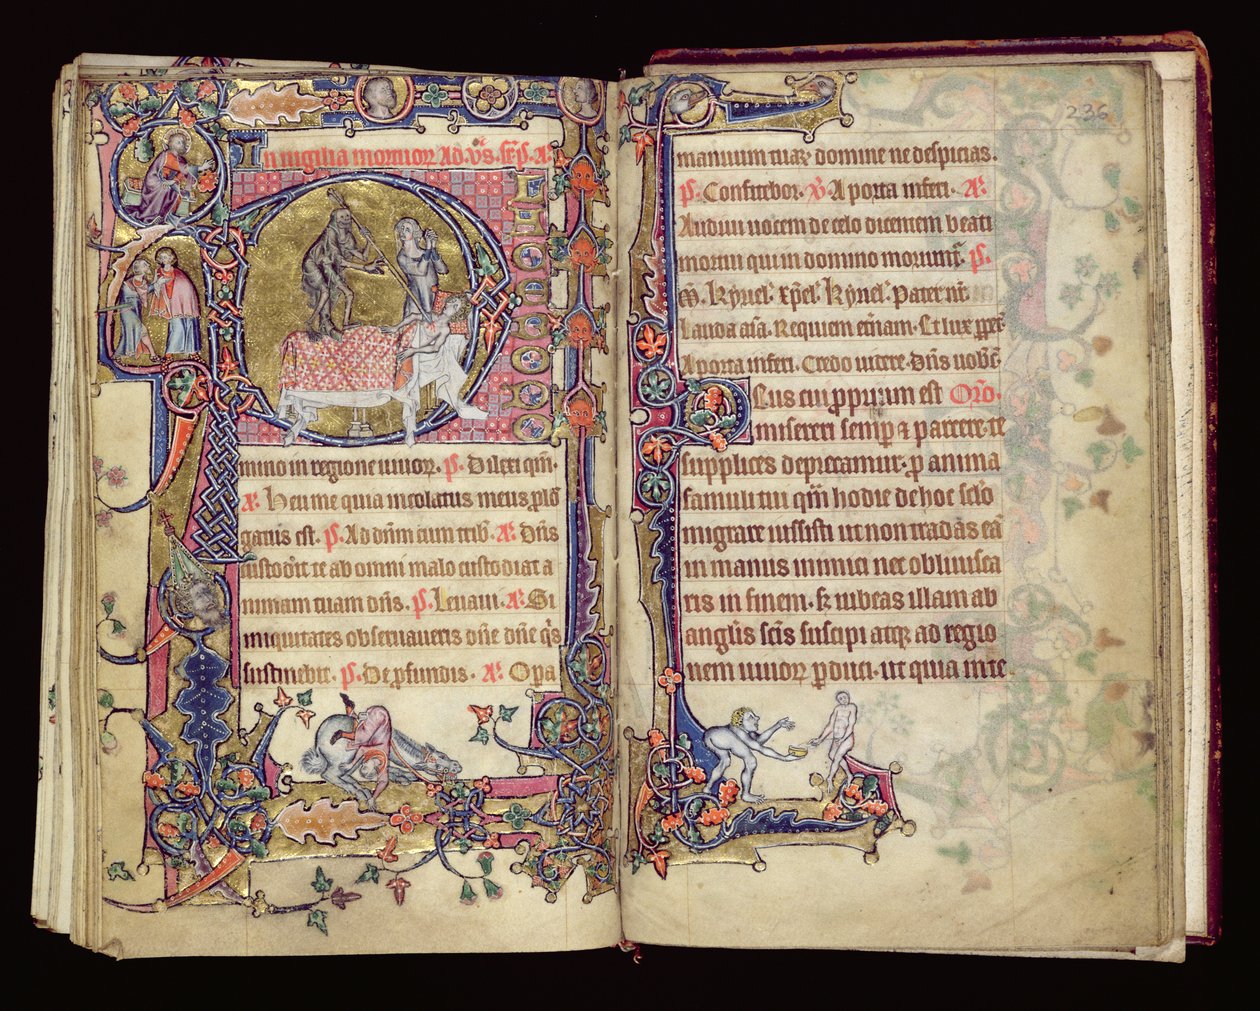 In uigilia mortuor Ad vs. ps. A.
mino in regione uiuor. ps. Dilexi qm.
A. Heu me quia incolatus meus plo
gatus est. ps. Ad dnm cum tribr. A. Dns
custodit te ab omni malo custodiat a
nimam tuam dns. ps. Leuaui. A. Si
iniquitates obseruaueris dne dne qs
sustinebit. ps. De pfundis. A. Opa
236
manuum tuar domine ne despicias.
ps. Confitebor. V. A porta inferi. A.
Audiui uocem de celo dicentem beati
mortui qui in domino moriuntr. ps.
M. Kyriel. xpel. Kyriel. Pater nr.
Lauda aia. Requiem etnam. Et lux ppet.
A porta inferi. Credo uidere. Dns uobc.
Deus cui pprium est Oro.
misereri semp et parcere te
supplices deprecamur. p anima
famuli tui qm hodie de hoc sclo
migrare iussisti ut non tradas ea
in manus inimici nec obliuisca
ris in finem. sz iubeas illam ab
anglis scis suscipi atqz ad regio
nem uiuor pduci. ut quia in te